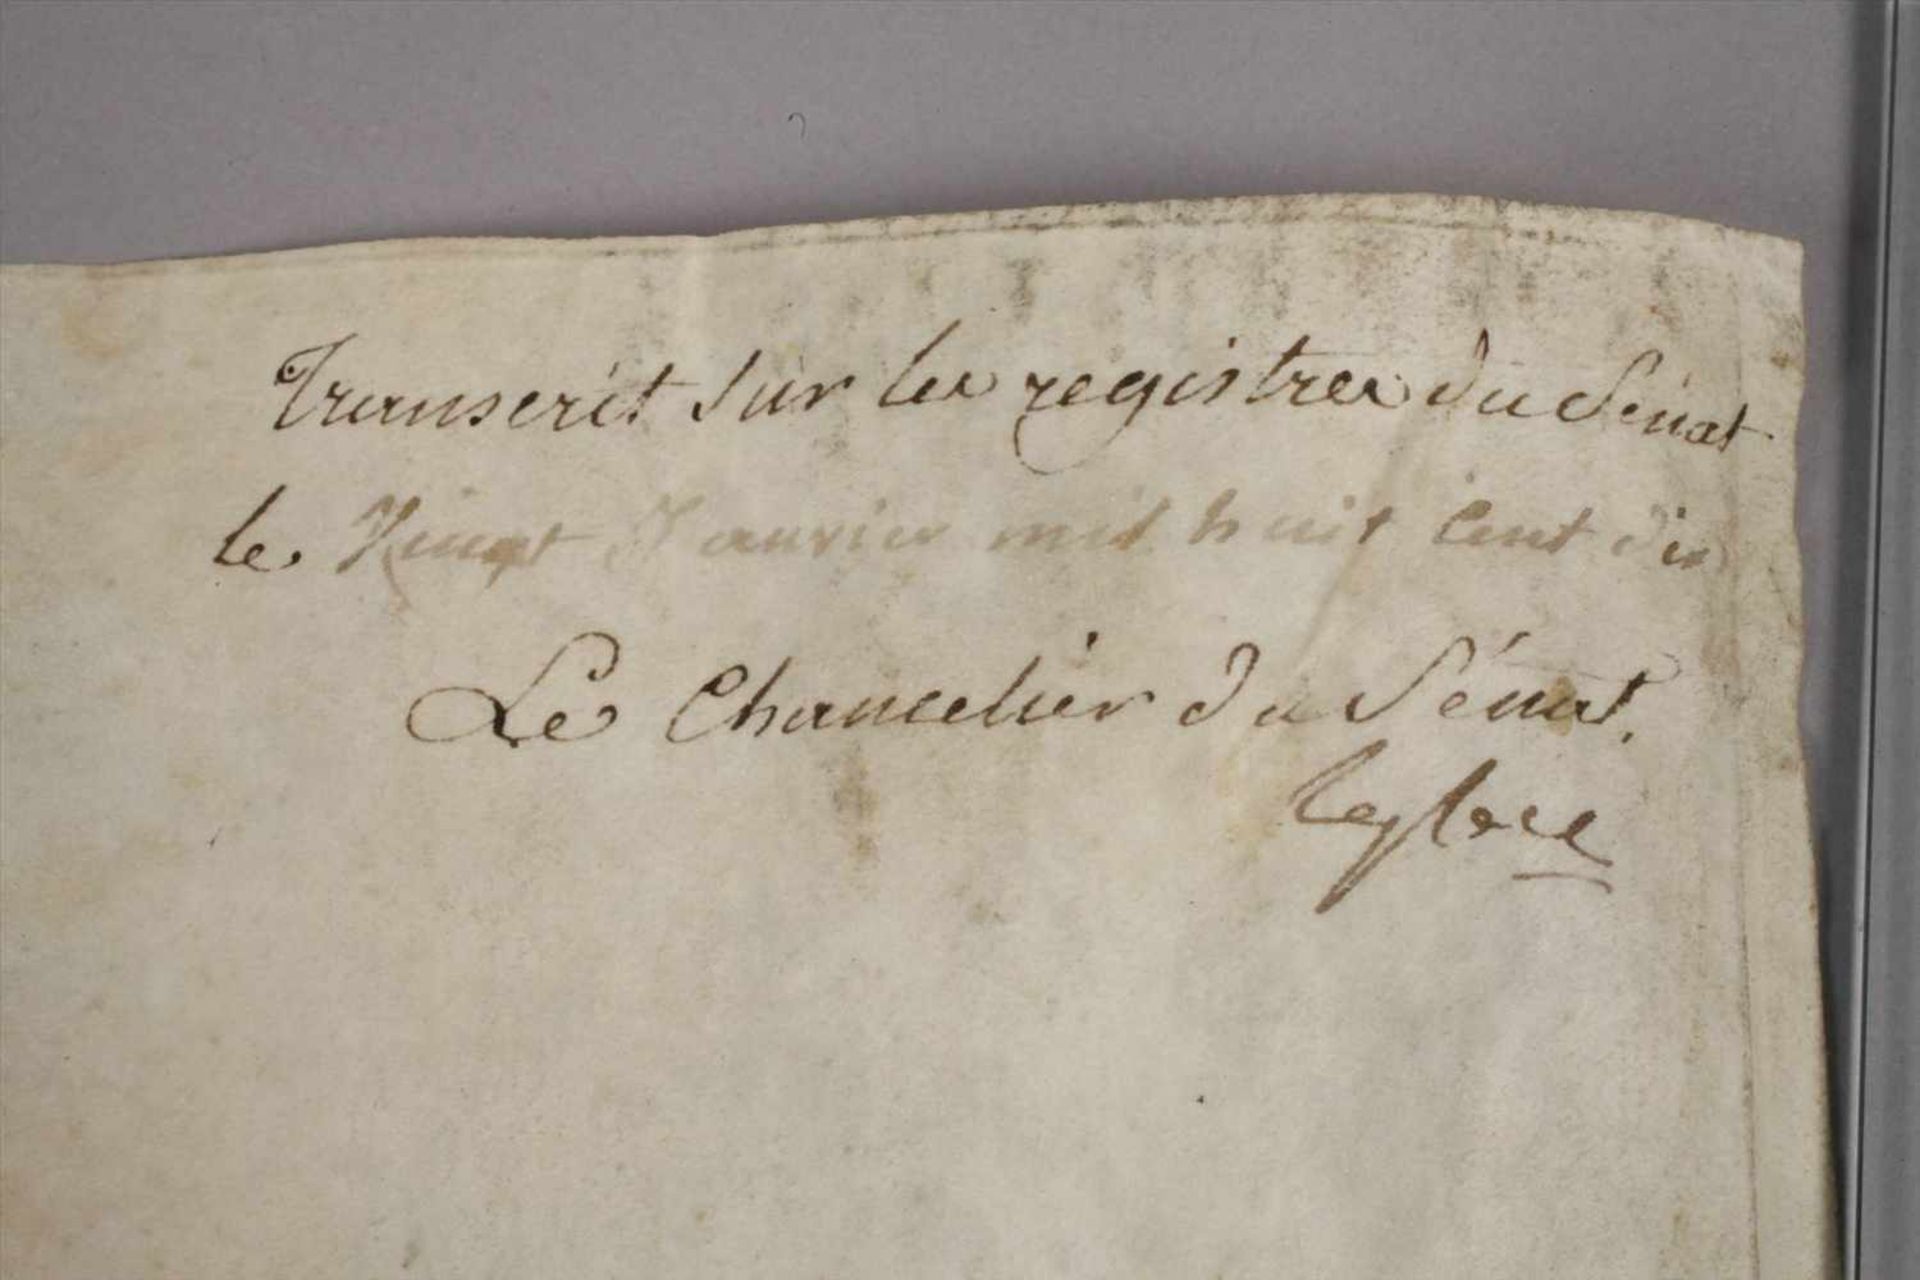 Transcrit sur les registres du Sénat
le Vingt Janvier mil huit Cent dix
Le Chancelier du Sénat.